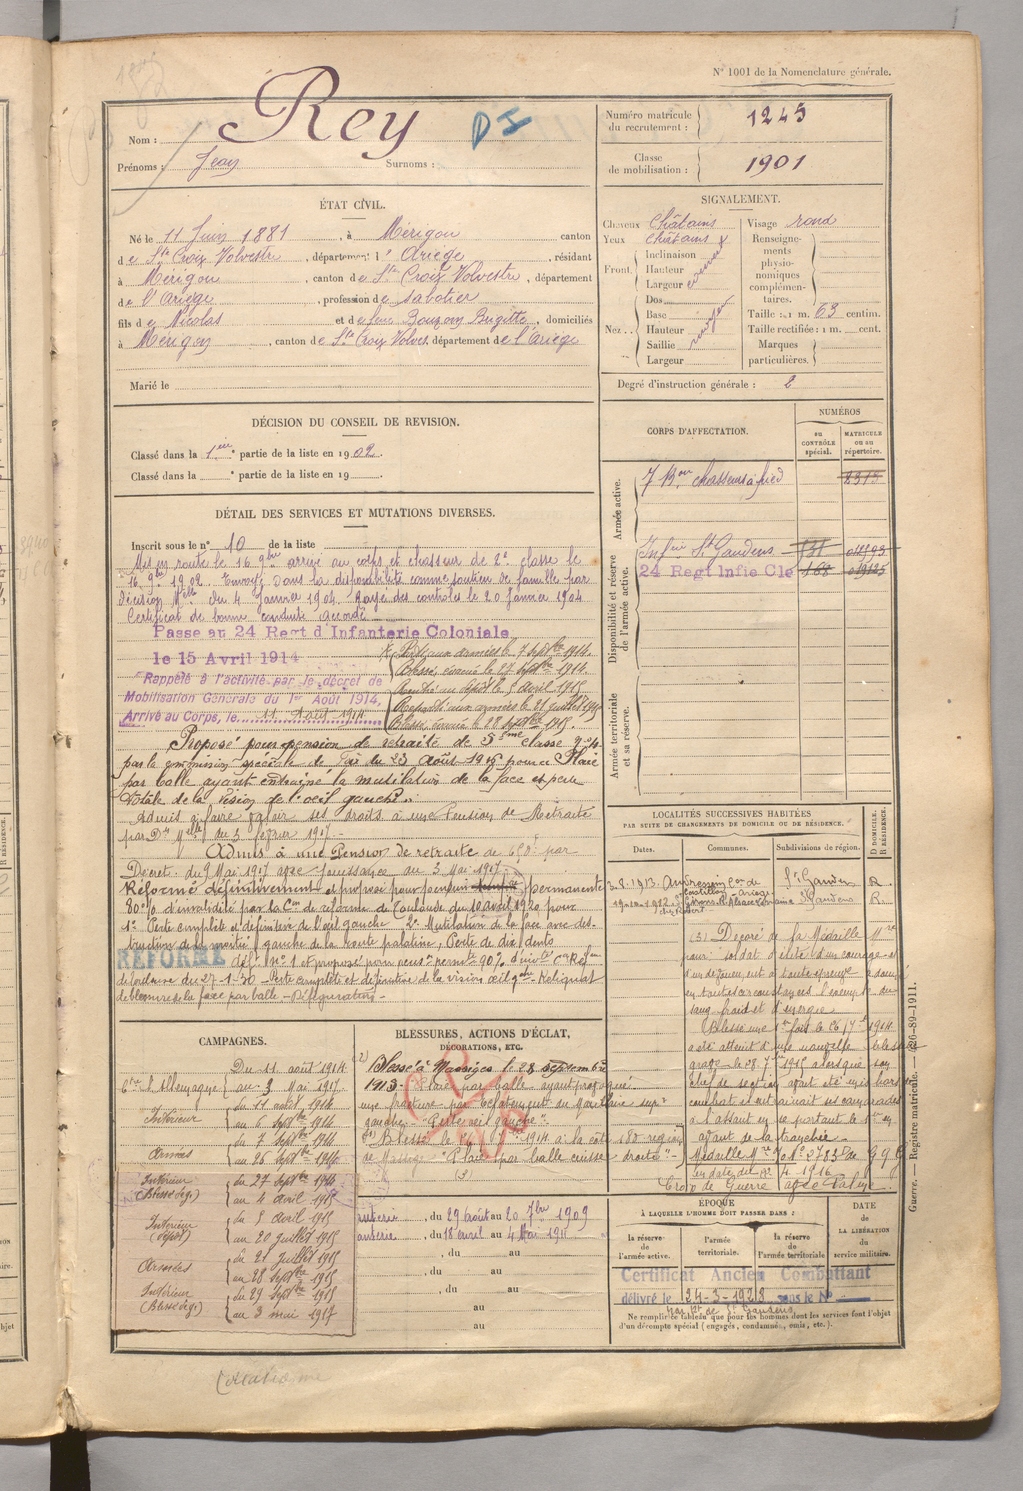 N° 1001 de la Nomenclature générale.
Nom : Rey
DI
Prénoms : Jean Surnoms :
Numéro matricule du recrutement : 1245
Classe de mobilisation : 1901
ÉTAT CIVIL.
Né le 11 Juin 1881, à Mérigon canton
de Ste Croix Volvestre, département d l'Ariège, résidant
à Mérigon, canton de Ste Croix Volvestre, département
de l'Ariège, profession de sabotier
fils de Nicolas et de feue Bouzom Brigitte, domiciliés
à Mérigon, canton de Ste Croix Volves. département de l'Ariège
Marié le
SIGNALEMENT.
Cheveux châtains
Yeux châtains
Front. Inclinaison
Hauteur
Largeur
Nez. Dos
Base
Hauteur
Saillie
Largeur
Visage rond
Renseignements physionomiques complémentaires.
Taille : 1 m. 63 centim.
Taille rectifiée : 1 m. cent.
Marques particulières.
Degré d'instruction générale : 2
DÉCISION DU CONSEIL DE REVISION.
Classé dans la 1ère partie de la liste en 1902.
Classé dans la e partie de la liste en 19
DÉTAIL DES SERVICES ET MUTATIONS DIVERSES.
Inscrit sous le n° 10 de la liste
Mis en route le 16 9bre arrivé au corps et chasseur de 2e classe le
16 9bre 1902. Envoyé dans la disponibilité comme soutien de famille par
décision Mlle du 4 Janvier 1904. Rayé des contrôles le 20 Janvier 1904
Certificat de bonne conduite accordé
Passé au 24 Regt d'Infanterie Coloniale
le 15 Avril 1914
Rappelé à l'activité par le décret de
Mobilisation Générale du 1er Août 1914,
Arrivé au Corps, le 11 Août 1914
Parti aux armées le 7 Septbre 1914.
Blessé, évacué le 27 septbre 1914.
Rentré au dépôt le 5 avril 1915
Reparti aux armées le 21 juillet 1915
Blessé, évacué le 28 septbre 1915.
Proposé pour pension de retraite de 5ème classe
par la commission spéciale de du 23 Août 1916 pour Plaie
par balle ayant entraîné la mutilation de la face et perte
totale de la vision de l'oeil gauche".
Admis à faire valoir ses droits à une Pension de Retraite
par Don Mlle du 3 février 1917.-
Admis à une Pension de retraite de par
Décret du 9 Mai 1917 avec jouissance au 3 Mai 1917
Réformé définitivement et proposé pour pension permanente
80% d'invalidité par la Con de réforme de Toulouse du 10 avril 1920 pour
1° Perte complète et définitive de l'oeil gauche 2° Mutilation de la face avec des-
truction de la moitié gauche de la voute palatine, Perte de dix dents
RÉFORMÉ déf. n° 1 et proposé pour pens° permte 90% d'inv.
du 27-1-30 - Perte complète et définitive de la vision oeil gche Reliquat
de blessures de la face par balle - Défiguration -
CORPS D'AFFECTATION.
NUMÉROS
au CONTRÔLE spécial.
MATRICULE ou au répertoire.
Armée active.
7 Bon chasseurs à pied 2313
Disponibilité et réserve de l'armée active.
Infrie St Gaudens 131
24 Regt Infie Cle 108
Armée territoriale et sa réserve.
LOCALITÉS SUCCESSIVES HABITÉES
PAR SUITE DE CHANGEMENTS DE DOMICILE OU DE RÉSIDENCE.
Dates. Communes. Subdivisions de région. D DOMICILE. R RÉSIDENCE.
3.8.1913 St Gaudens R.
St Gaudens R.
(3) Décoré de la Médaille Mre
pour: soldat d'élite d'un courage et
d'un dévouement à toute épreuve a donné
en toutes circonstances l'exemple du
sang froid et d'énergie
Blessé une 1re fois le 26 7bre 1914
a été atteint d'une nouvelle blessure
grave le 28.7bre 1915 alors que son
chef de section ayant été mis hors de
combat il entrainait ses camarades
à l'assaut en se portant le 1er en
avant de la tranchée.
Médaille Mre
1916
Croix de Guerre avec Palme
CAMPAGNES.
Ctre l'Allemagne Du 11 août 1914
au 3 Mai 1917.
Intérieur du 11 août 1914
au 6 Septbre 1914
Armées du 7 Septbre 1914
au 26 Septbre 1914
Intérieur (Blessé de g.) du 27 septbre 1914
au 4 avril 1915
Intérieur (dépôt) du 5 avril 1915
au 20 juillet 1915
Armées du 21 juillet 1915
au 28 septbre 1915
Intérieur (Blessé de g.) du 29 septbre 1915
au 3 mai 1917
BLESSURES, ACTIONS D'ÉCLAT,
DÉCORATIONS, ETC.
2) Blessé à Massiges le 28 septembre
1915. Plaie par balle ayant provoqué
une fracture par éclatement du Maxillaire supr
gauche - Perte oeil gauche.
Blessé le 26 7bre 1914 à la côte 180 région
de Massiges "Plaie par balle cuisse droite".-
(3)
du 29 août au 20 7bre 1909
du 18 avril au 4 Mai 1911
du au
du au
au
au
ÉPOQUE
À LAQUELLE L'HOMME DOIT PASSER DANS :
la réserve de l'armée active.
l'armée territoriale.
la réserve de l'armée territoriale
DATE de LA LIBÉRATION du service militaire.
Certificat Ancien Combattant
délivré le 24-3-1928 sous le N°
par Cté de St Gaudens
Ne remplir ce tableau que pour les hommes dont les services font l'objet
d'un décompte spécial (engagés, condamnés, omis, etc.).
Guerre. — Registre matricule. — 726-89-1911.